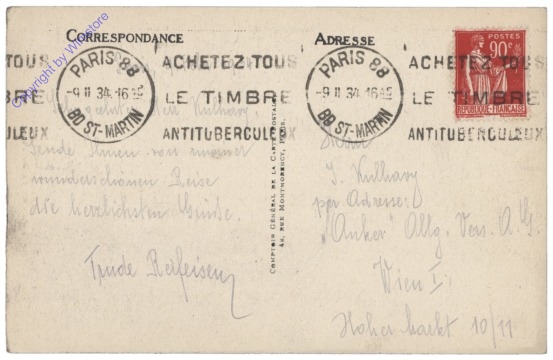 CORRESPONDANCE
ADRESSE
Copyright by Wiñstore
POSTES
90c
REPUBLIQUE FRANÇAISE
TOUS
BRE
CULEUX
PARIS 88
-9 II 34 16 15
BD ST-MARTIN
ACHETEZ TOUS
LE TIMBRE
ANTITUBERCULEUX
PARIS 88
-9 II 34 16 15
BD ST-MARTIN
ACHETEZ TOUS
LE TIMBRE
ANTITUBERCULEUX
Kulhavy,
Sende Ihnen von meiner
wunderschönen Reise
die herzlichsten Grüße.
Trude
COMPTOIR GÉNÉRAL DE LA CARTE POSTALE
48, RUE MONTMORENCY, PARIS.
J. Kulhavy
per Adresse:
"Anker" Allg. Vers. A. G.
Wien I.
Hoher Markt 10/11